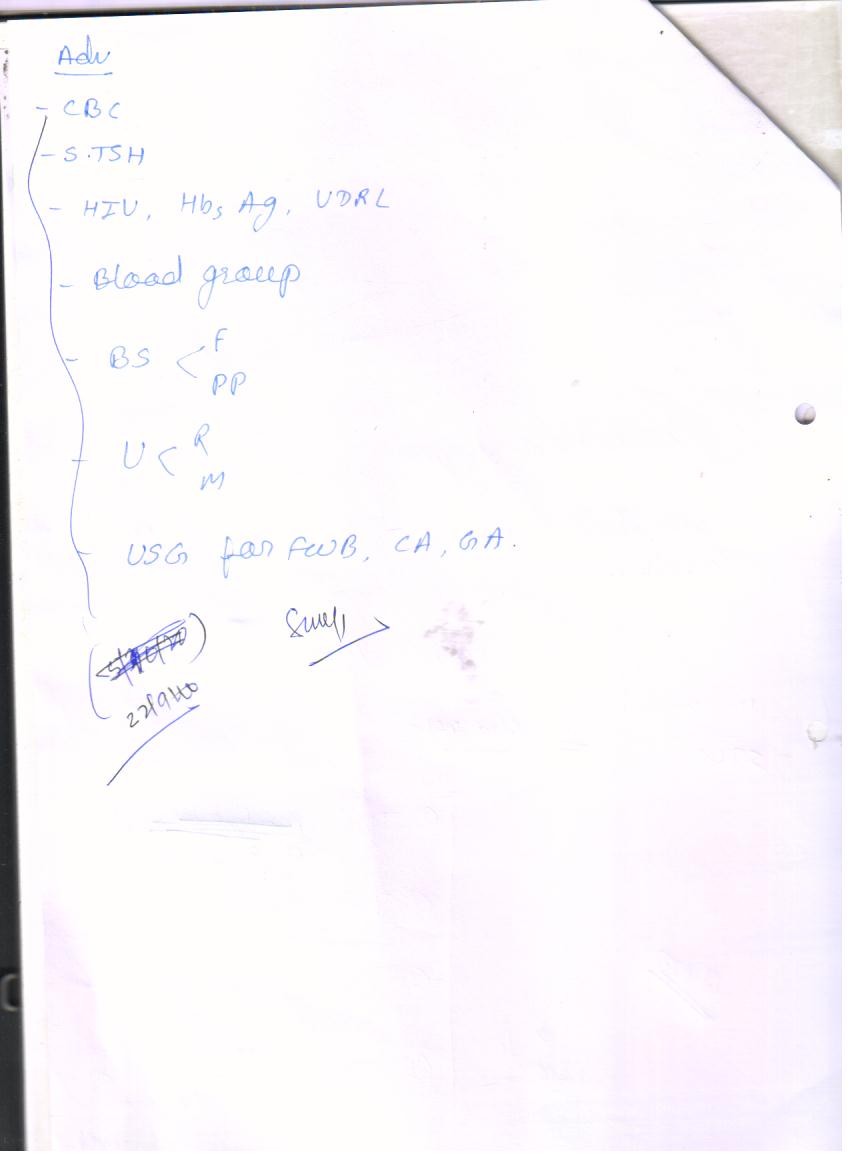 Adv
- CBC
- S.TSH
- HIV, HbsAg, VDRL
- Blood group
- BS < F
PP
- U < R
M
- USG for FWB, CA, GA.